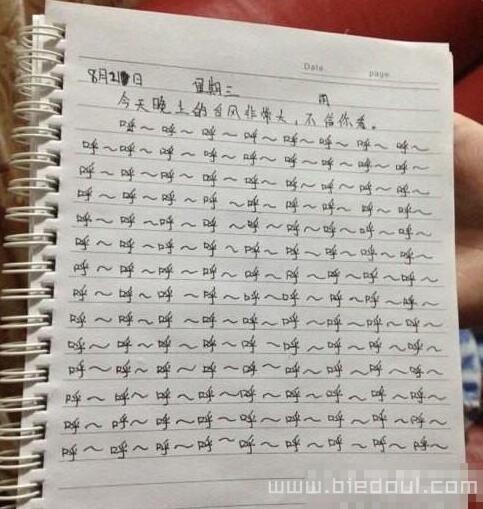 Date. page.
8月21日 星期三 雨
今天晚上的台风非常大，不信你看。
呼～呼～呼～呼～呼～呼～呼～呼～
呼～呼～呼～呼～呼～呼～呼～呼～呼～
呼～呼～呼～呼～呼～呼～呼～呼～呼～
呼～呼～呼～呼～呼～呼～呼～呼～呼～
呼～呼～呼～呼～呼～呼～呼～呼～呼～
呼～呼～呼～呼～呼～呼～呼～呼～呼～
呼～呼～呼～呼～呼～呼～呼～呼～呼～
呼～呼～呼～呼～呼～呼～呼～呼～呼～
呼～呼～呼～呼～呼～呼～呼～呼～呼～
呼～呼～呼～呼～呼～呼～呼～呼～呼～
呼～呼～呼～呼～呼～呼～呼～呼～呼～
呼～呼～呼～呼～呼～呼～呼～呼～呼～
呼～呼～呼～呼～呼～呼～呼～呼～呼～
呼～呼～呼～呼～呼～呼～呼～呼～呼～
www.biedoul.com